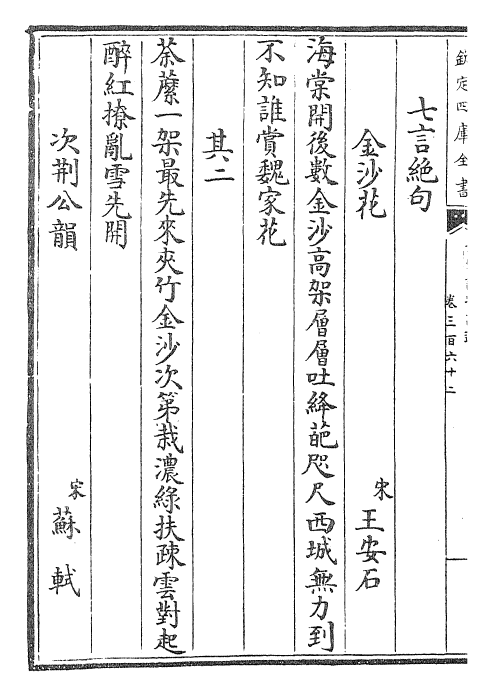 欽定四庫全書
卷三百六十二
七言絶句
金沙花
宋 王安石
海棠開後數金沙高架層層吐絳葩咫尺西城無力到
不知誰賞魏家花
其二
荼䕷一架最先來夾竹金沙次第栽濃綠扶疎雲對起
醉紅撩亂雪先開
次荆公韻
宋 蘇軾